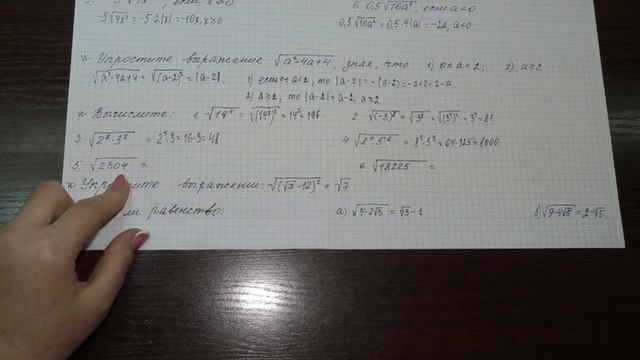 если x≥0 6. 0,5√16a², если a<0
-5√4x² = -5·2|x| = -10x, x≥0 0,5√16a² = 0,5·4|a| = -2a, a<0
Упростите выражение √a²-4a+4, зная, что 1) 0≤a<2; 2) a≥2
√a²-4a+4 = √(a-2)² = |a-2|. 1) если 0≤a<2, то |a-2| = -(a-2) = -a+2 = 2-a
2) a≥2, то |a-2| = a-2, a≥2
Вычислите: 1. √14⁴ = √(14²)² = 14² = 196. 2. √(-3)⁸ = √3⁸ = √(3⁴)² = 3⁴ = 81.
3. √2⁸·3² = 2⁴·3 = 16·3 = 48 4. √8⁴·5⁶ = 8²·5³ = 64·125 = 8000.
5. √2304 = 6. √18225 =
Упростите выражение: √(√7-12)² + √7
ли равенство: а) √4-2√3 = √3-1 б) √9-4√5 = 2-√5